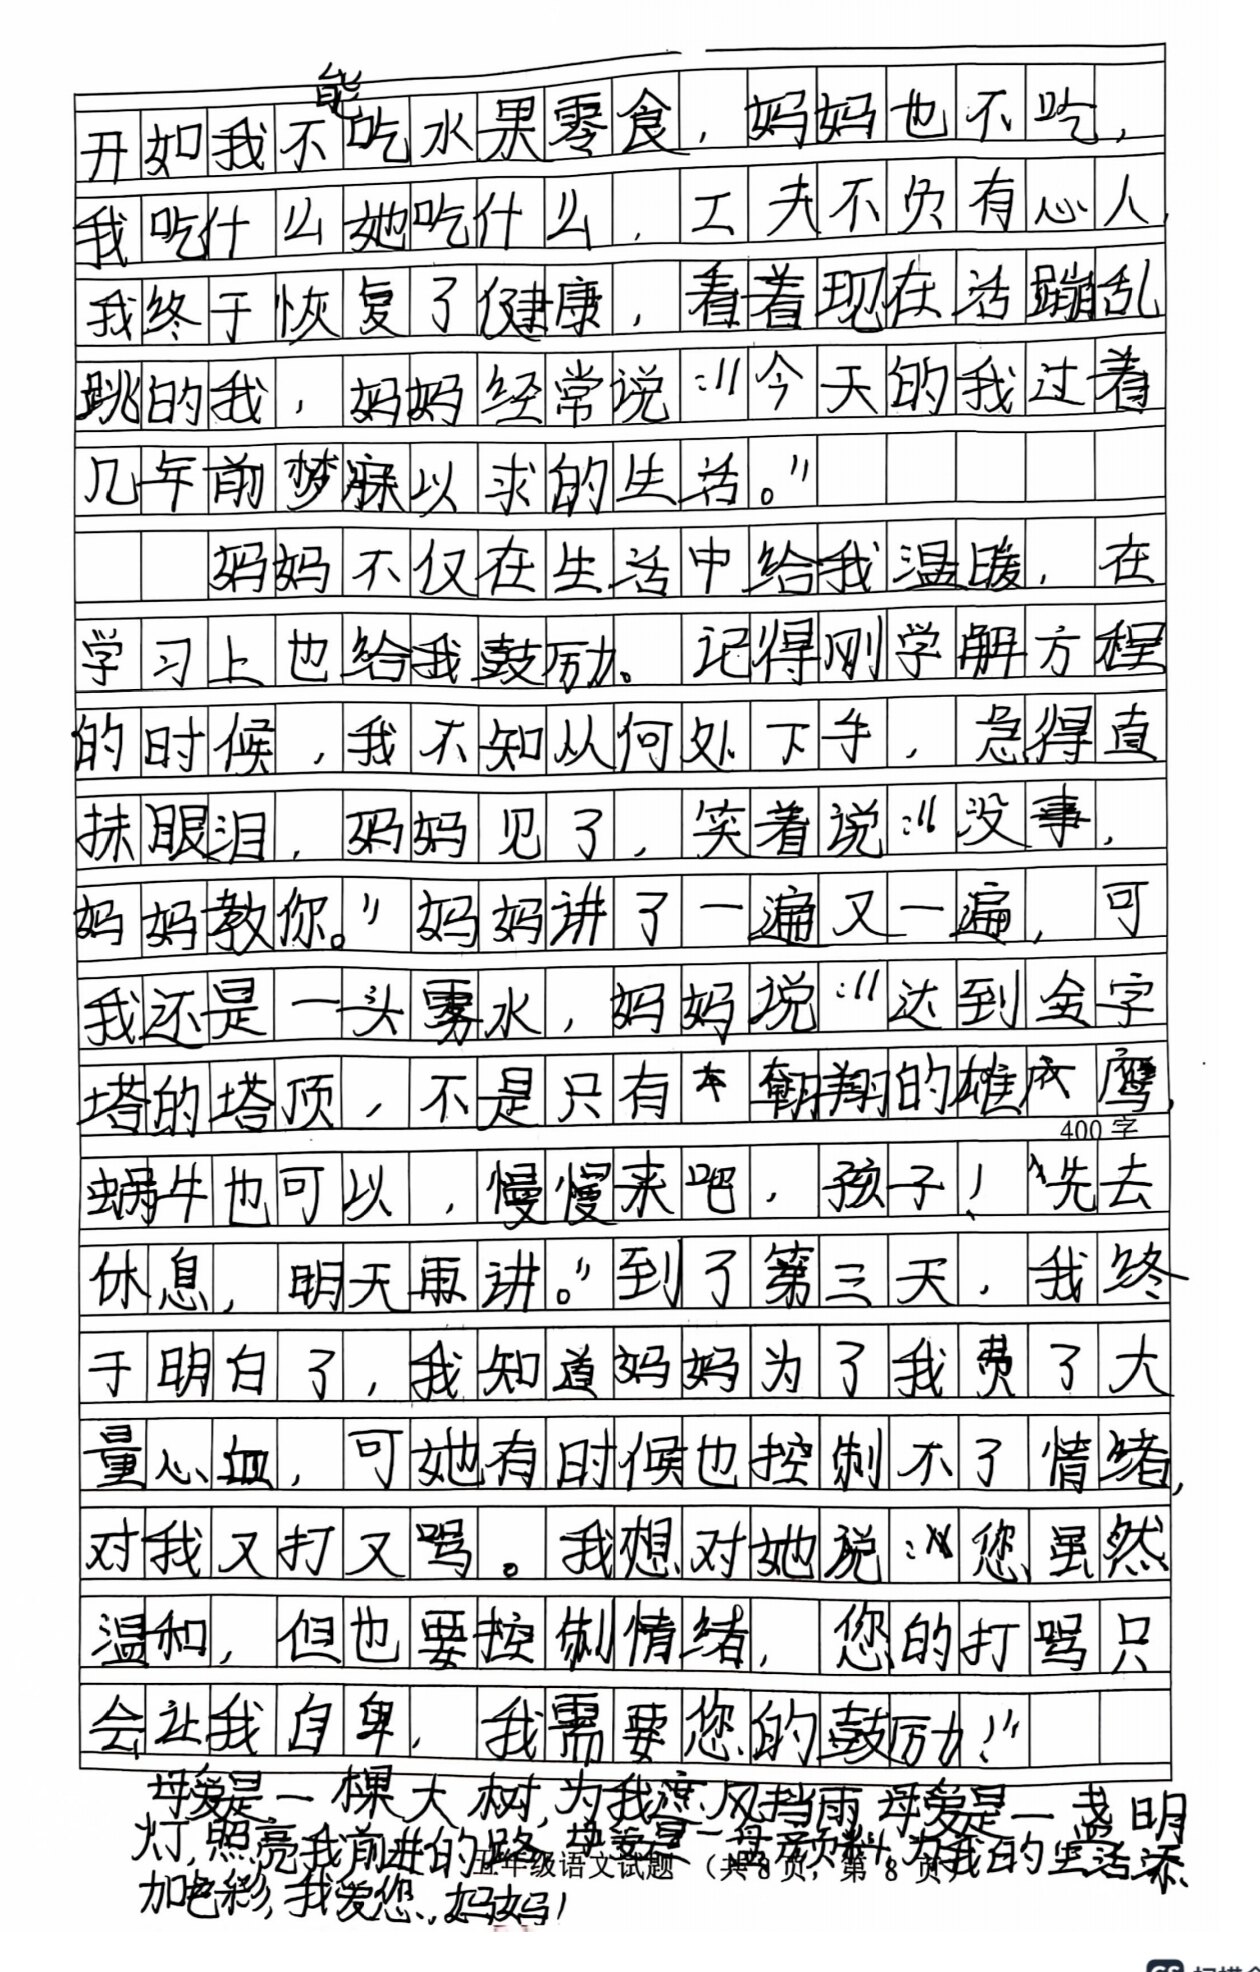 能
开如我不吃水果零食，妈妈也不吃，
我吃什么她吃什么，工夫不负有心人，
我终于恢复了健康，看着现在活蹦乱
跳的我，妈妈经常说：“今天的我过着
几年前梦寐以求的生活。”
妈妈不仅在生活中给我温暖，在
学习上也给我鼓励。记得刚学解方程
的时候，我不知从何处下手，急得直
抹眼泪，妈妈见了，笑着说：“没事，
妈妈教你。”妈妈讲了一遍又一遍，可
我还是一头雾水，妈妈说：“达到金字
塔的塔顶，不是只有翱翔的雄鹰，
400字
蜗牛也可以，慢慢来吧，孩子！先去
休息，明天再讲。”到了第三天，我终
于明白了，我知道妈妈为了我费了大
量心血，可她有时候也控制不了情绪，
对我又打又骂。我想对她说：“您虽然
温和，但也要控制情绪，您的打骂只
会让我自卑，我需要您的鼓励！”
母爱是一棵大树，为我遮风挡雨，母爱是一盏明
灯，照亮我前进的路，母爱是一盘颜料，为我的生活添
五年级语文试题 （共8页，第8页）
加色彩，我爱您，妈妈！